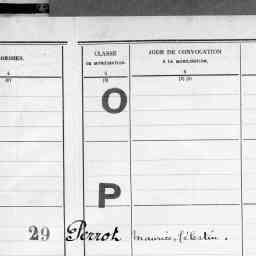 CLASSE
DE MOBILISATION.
JOUR DE CONVOCATION
À LA MOBILISATION.
4
4
4
O
P
29 Perrot Maurice, Célestin.